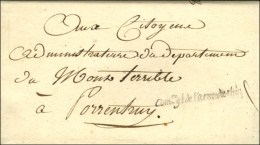 Aux Citoyens
Administrateurs du departement
du Mont terrible
à Porrentruy.